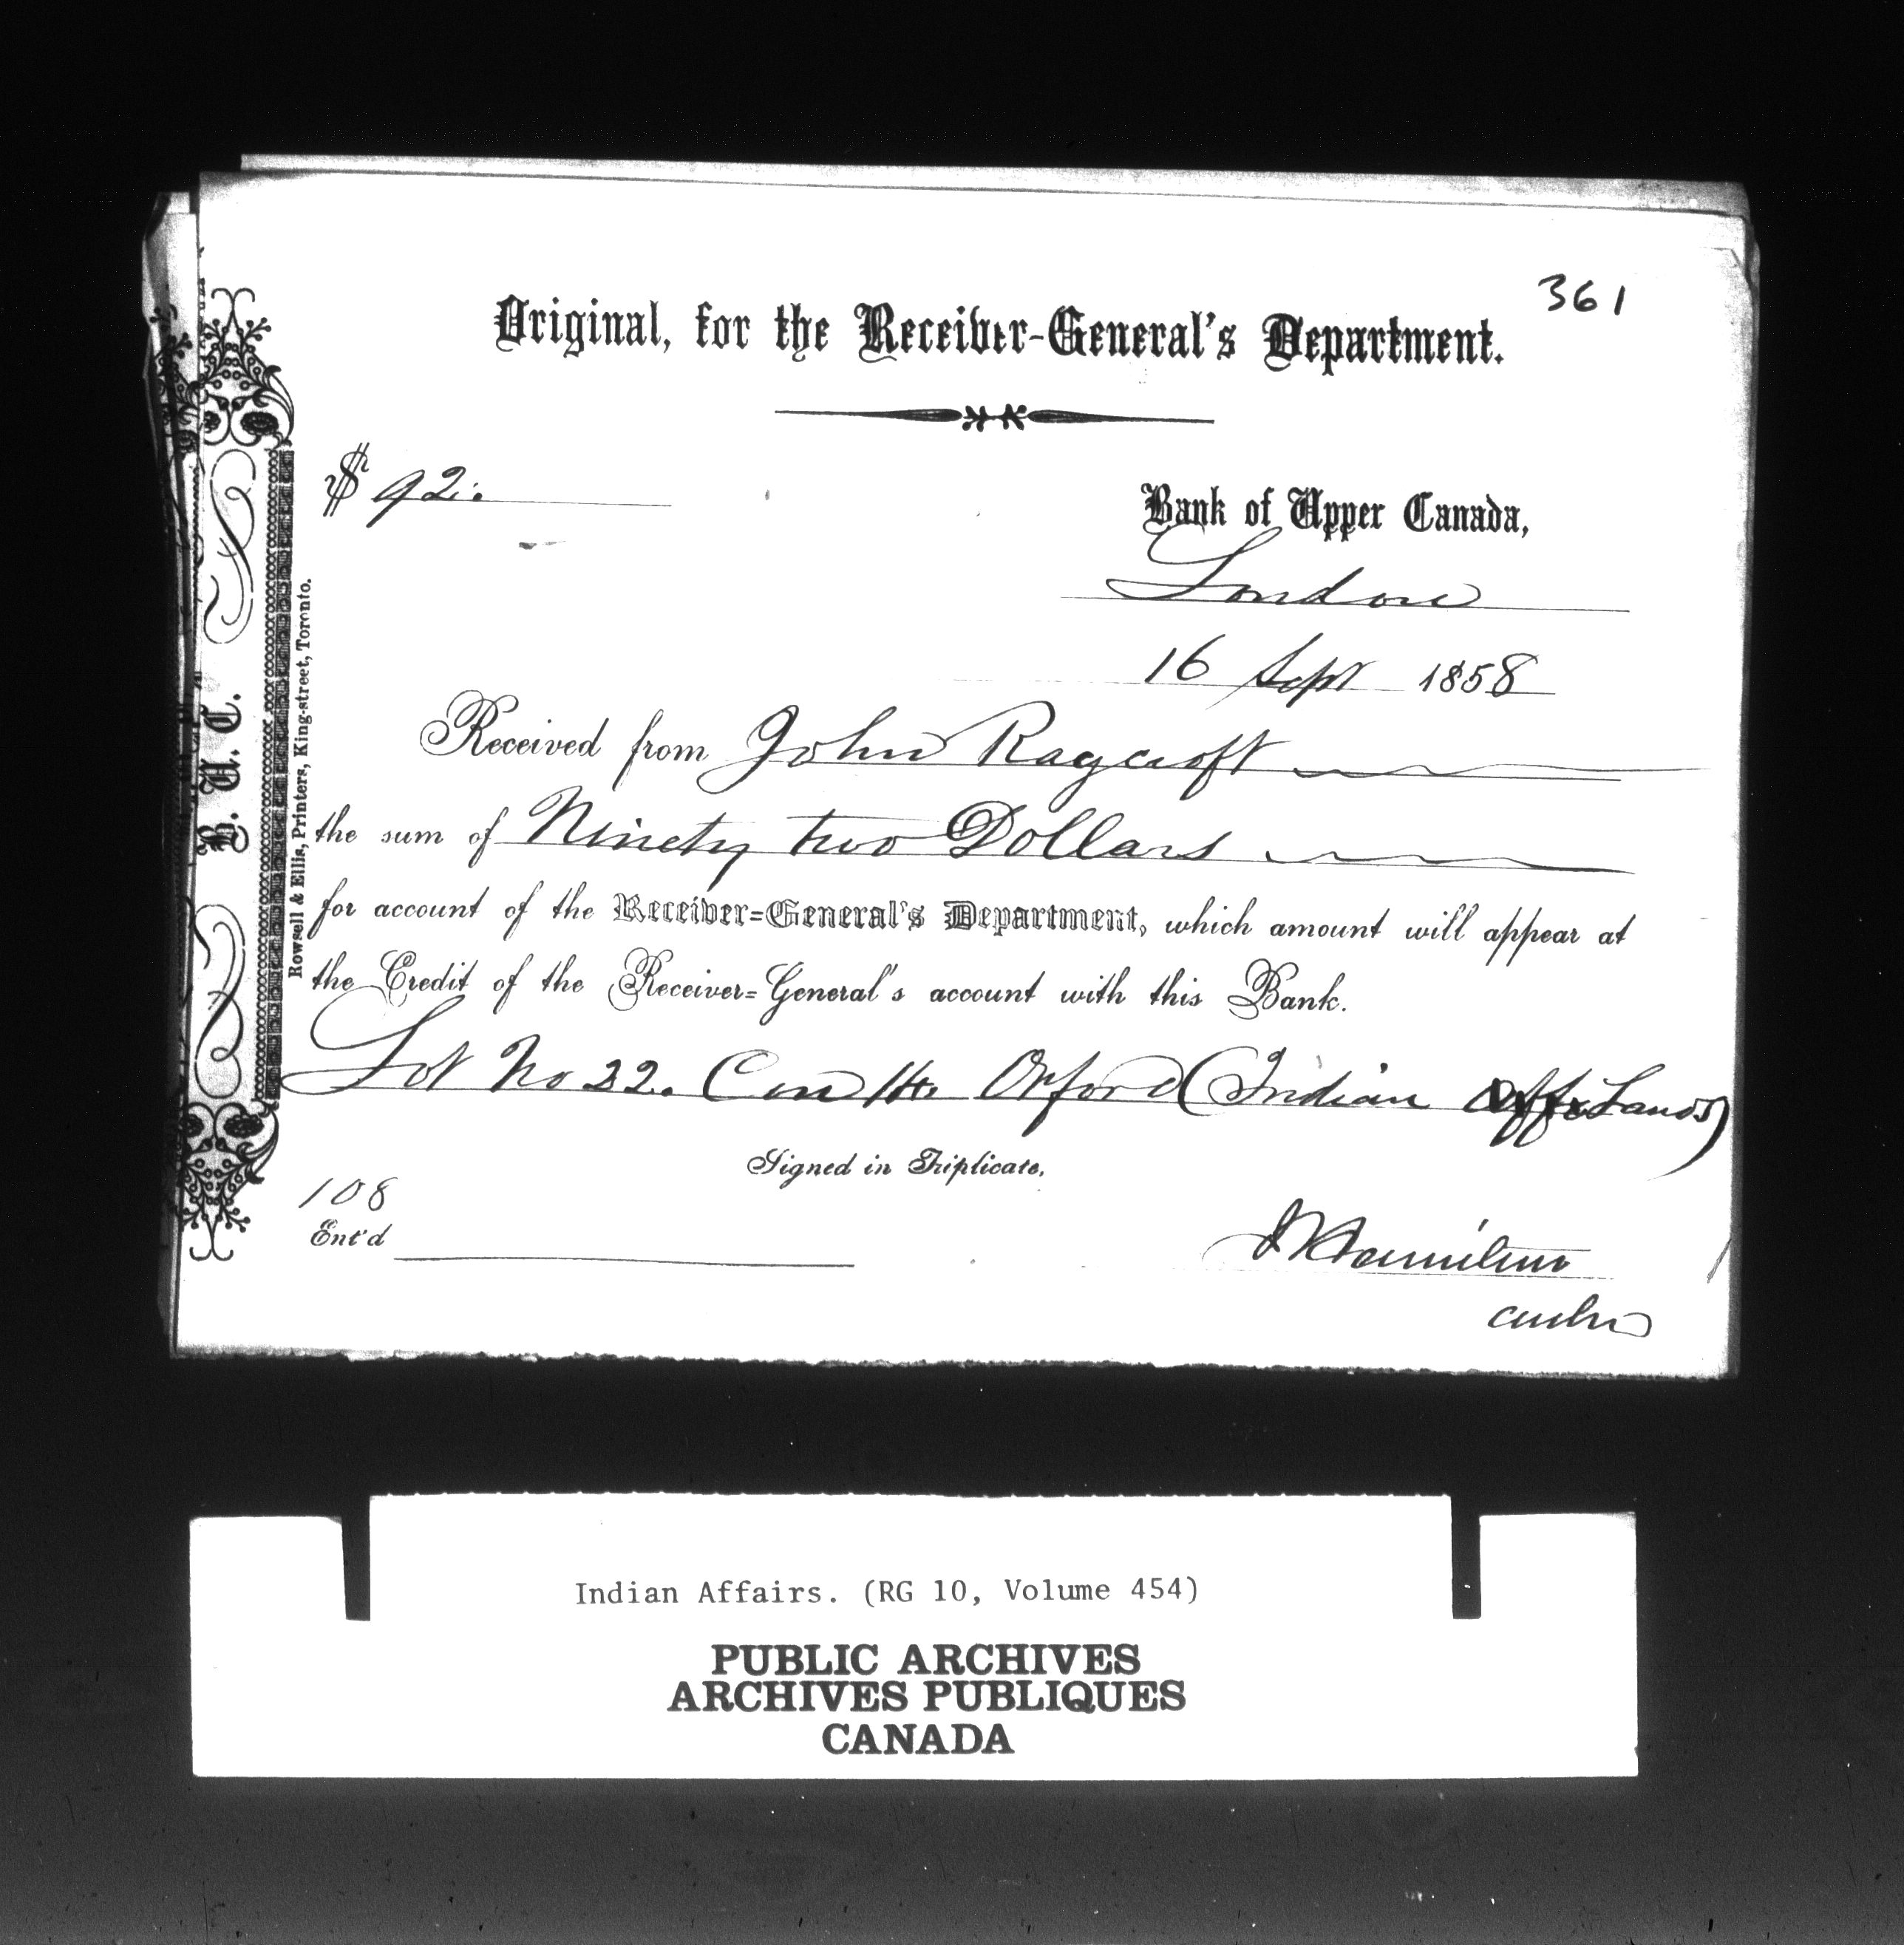 361
Original, for the Receiver-General's Department.
$ 92.
Bank of Upper Canada,
London
16 Sept 1858
Received from John Raycroft
the sum of Ninety two Dollars
for account of the Receiver=General's Department, which amount will appear at
the Credit of the Receiver=General's account with this Bank.
Lot No 22. Con 14. Orford (Indian Lands)
Signed in Triplicate.
108
Ent'd
Hamilton
B. U. C.
Rowsell & Ellis, Printers, King-street, Toronto.
Indian Affairs. (RG 10, Volume 454)
PUBLIC ARCHIVES
ARCHIVES PUBLIQUES
CANADA